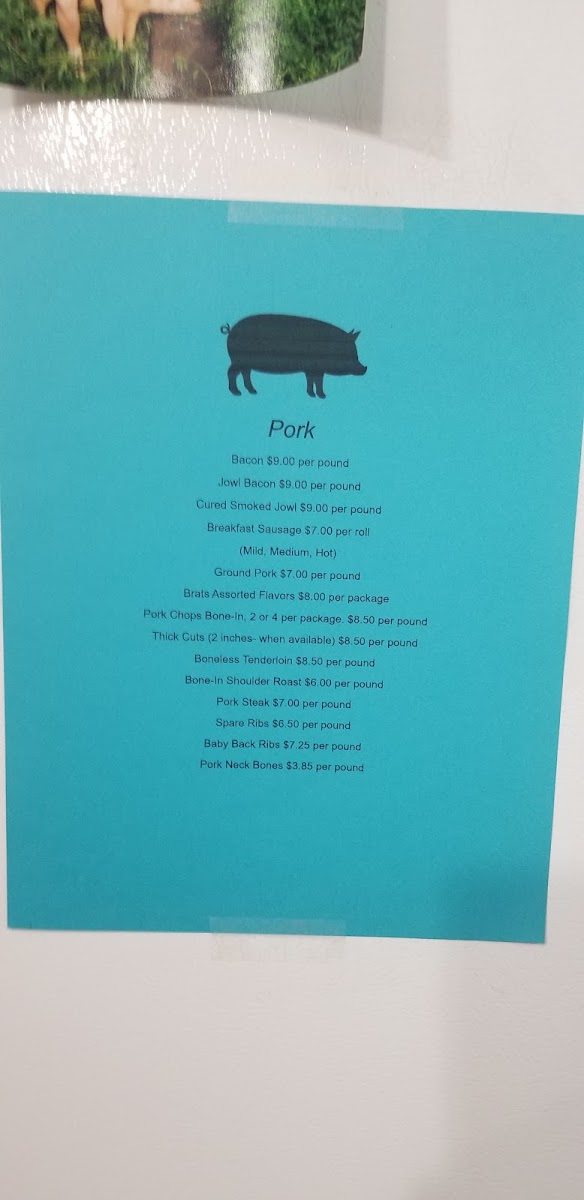 Pork
Bacon $9.00 per pound
Jowl Bacon $9.00 per pound
Cured Smoked Jowl $9.00 per pound
Breakfast Sausage $7.00 per roll
(Mild, Medium, Hot)
Ground Pork $7.00 per pound
Brats Assorted Flavors $8.00 per package
Pork Chops Bone-In, 2 or 4 per package. $8.50 per pound
Thick Cuts (2 inches- when available) $8.50 per pound
Boneless Tenderloin $8.50 per pound
Bone-In Shoulder Roast $6.00 per pound
Pork Steak $7.00 per pound
Spare Ribs $6.50 per pound
Baby Back Ribs $7.25 per pound
Pork Neck Bones $3.85 per pound